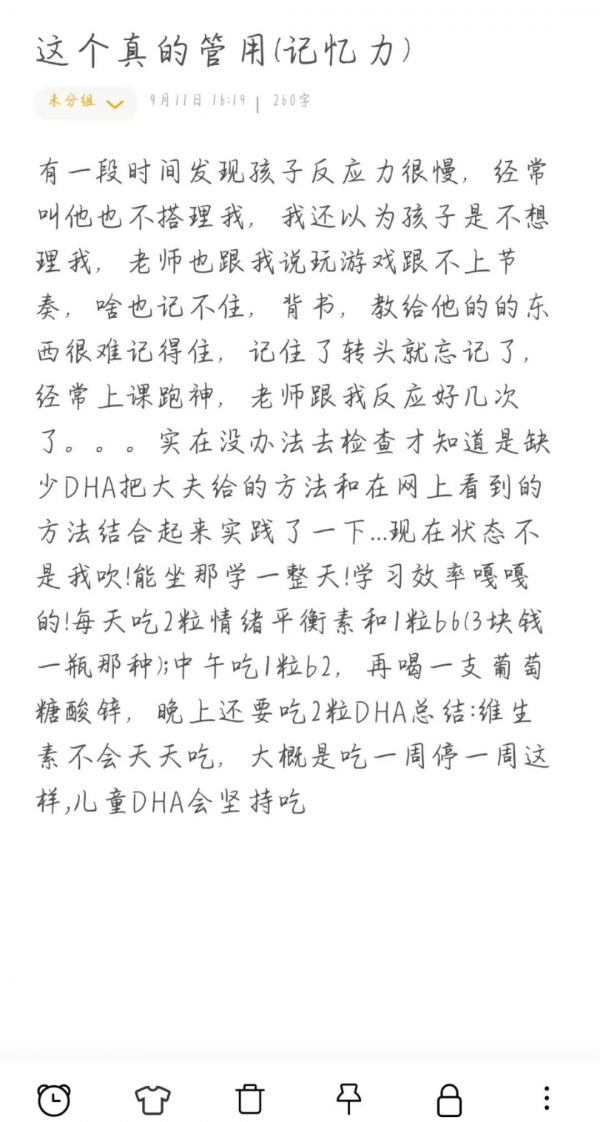 这个真的管用(记忆力)
未分组 9月11日 16:19 | 260字
有一段时间发现孩子反应力很慢，经常
叫他也不搭理我，我还以为孩子是不想
理我，老师也跟我说玩游戏跟不上节
奏，啥也记不住，背书，教给他的的东
西很难记得住，记住了转头就忘记了，
经常上课跑神，老师跟我反应好几次
了。。。实在没办法去检查才知道是缺
少DHA把大夫给的方法和在网上看到的
方法结合起来实践了一下...现在状态不
是我吹!能坐那学一整天!学习效率嘎嘎
的!每天吃2粒情绪平衡素和1粒b6(3块钱
一瓶那种);中午吃1粒b2，再喝一支葡萄
糖酸锌，晚上还要吃2粒DHA总结:维生
素不会天天吃，大概是吃一周停一周这
样,儿童DHA会坚持吃